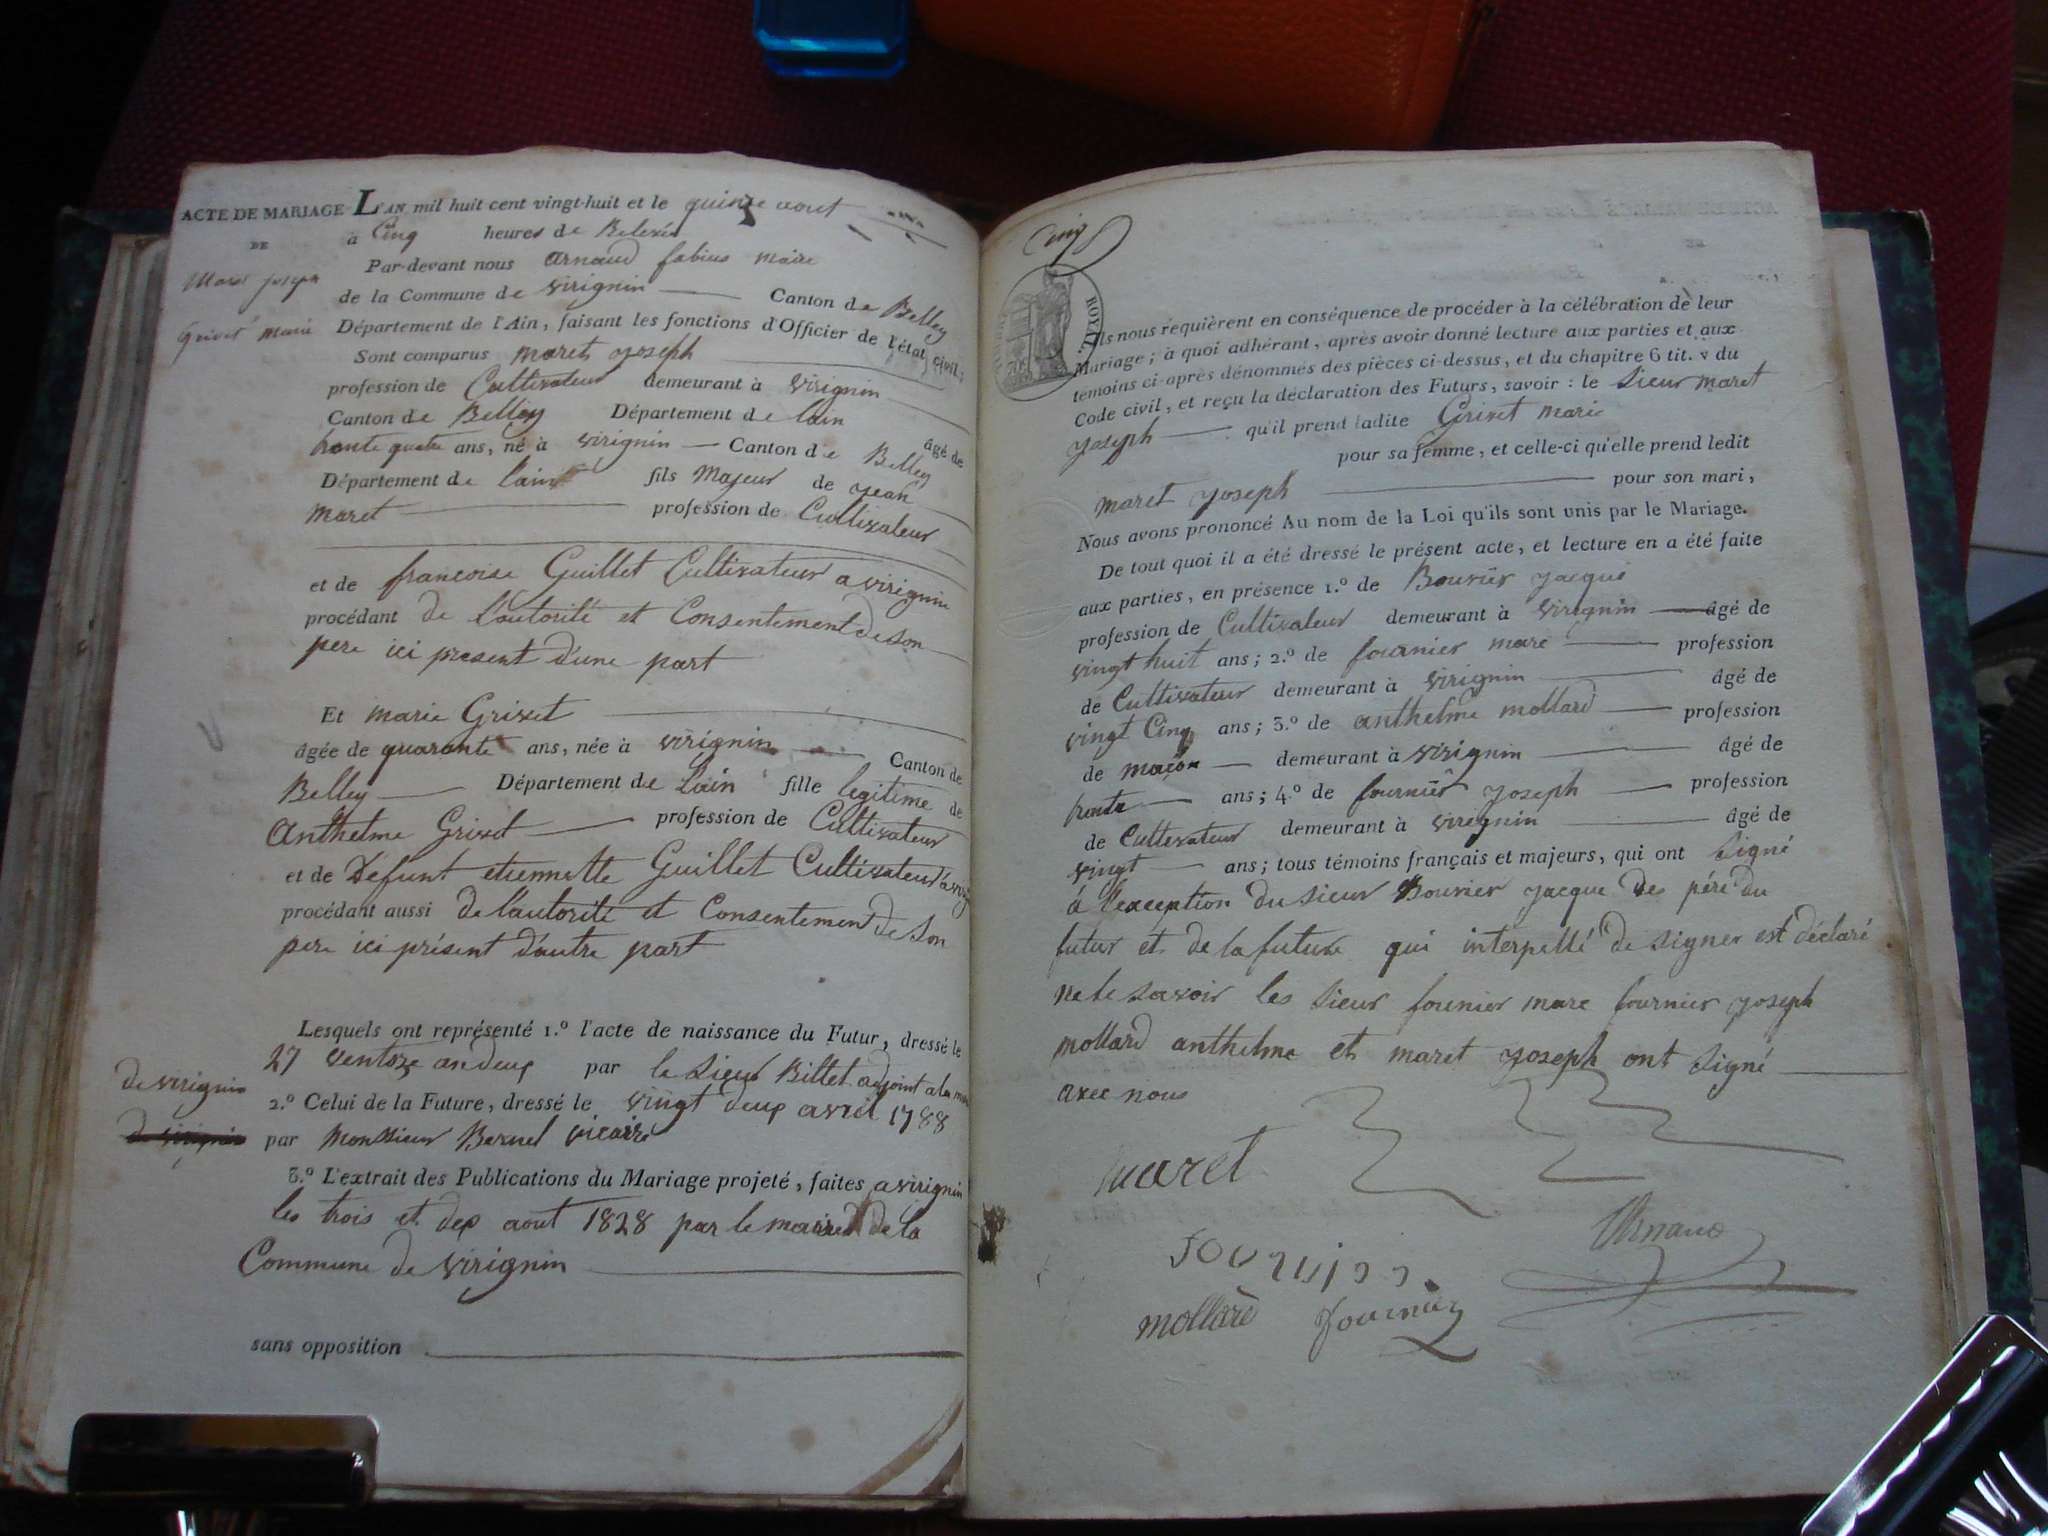 ACTE DE MARIAGE L'AN mil huit cent vingt-huit et le quinze aout
DE
à Cinq heures de Relevée
Maret joseph
Grivet marie
Par-devant nous arnaud fabius maire
de la Commune de virignin Canton de Belley
Département de l'Ain, faisant les fonctions d'Officier de l'état civil;
Sont comparus maret joseph
profession de Cultivateur demeurant à virignin
Canton de Belley Département de lain âgé de
trente quatre ans, né à virignin Canton de Belley
Département de lain fils Majeur de jean
maret profession de Cultivateur
et de francoise Guillet Cultivateur a virignin
procédant de l'autorité et Consentement de son
pere ici present d'une part
Et marie Grivet
âgée de quarante ans, née à virignin Canton de
Belley Département de lain fille legitime de
Anthelme Grivet profession de Cultivateur
et de Défunt etiennette Guillet Cultivateur à
procédant aussi de l'autorité et Consentement de Son
pere ici présent d'autre part
Lesquels ont représenté 1.º l'acte de naissance du Futur, dressé le
27 ventoze an deux par le sieur Billet adjoint a la
de virignin
2.º Celui de la Future, dressé le vingt deux avril 1788
de virignin
par Monsieur Bernel vicaire
3.º L'extrait des Publications du Mariage projeté, faites a virignin
les trois et dex aout 1828 par le maire de la
Commune de virignin
sans opposition
Cinq
ROYAL.
Ils nous requièrent en conséquence de procéder à la célébration de leur
Mariage; à quoi adhérant, après avoir donné lecture aux parties et aux
témoins ci-après dénommés des pièces ci-dessus, et du chapitre 6 tit. v du
Code civil, et reçu la déclaration des Futurs, savoir : le Sieur maret
joseph qu'il prend ladite Grivet marie
pour sa femme, et celle-ci qu'elle prend ledit
maret joseph pour son mari,
Nous avons prononcé Au nom de la Loi qu'ils sont unis par le Mariage.
De tout quoi il a été dressé le présent acte, et lecture en a été faite
aux parties, en présence 1.º de Bouvier jacque
profession de Cultivateur demeurant à virignin âgé de
vingt huit ans; 2.º de fournier marc profession
de Cultivateur demeurant à virignin âgé de
vingt Cinq ans; 3.º de anthelme mollard profession
de maçon demeurant à virignin âgé de
trente ans; 4.º de fournier joseph profession
de Cultivateur demeurant à virignin âgé de
vingt ans; tous témoins français et majeurs, qui ont signé
à l'exception du sieur Bouvier jacque des pére du
futur et de la future qui interpellé de signer est déclaré
ne le savoir les sieur founier marc fournier joseph
mollard anthelme et maret joseph ont signé
avec nous
maret
Arnaud
mollard fournier